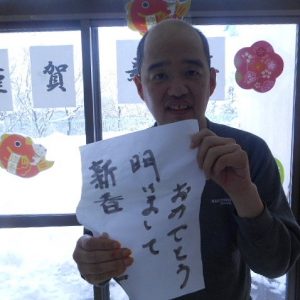 賀
新春
明けまして
おめでとう